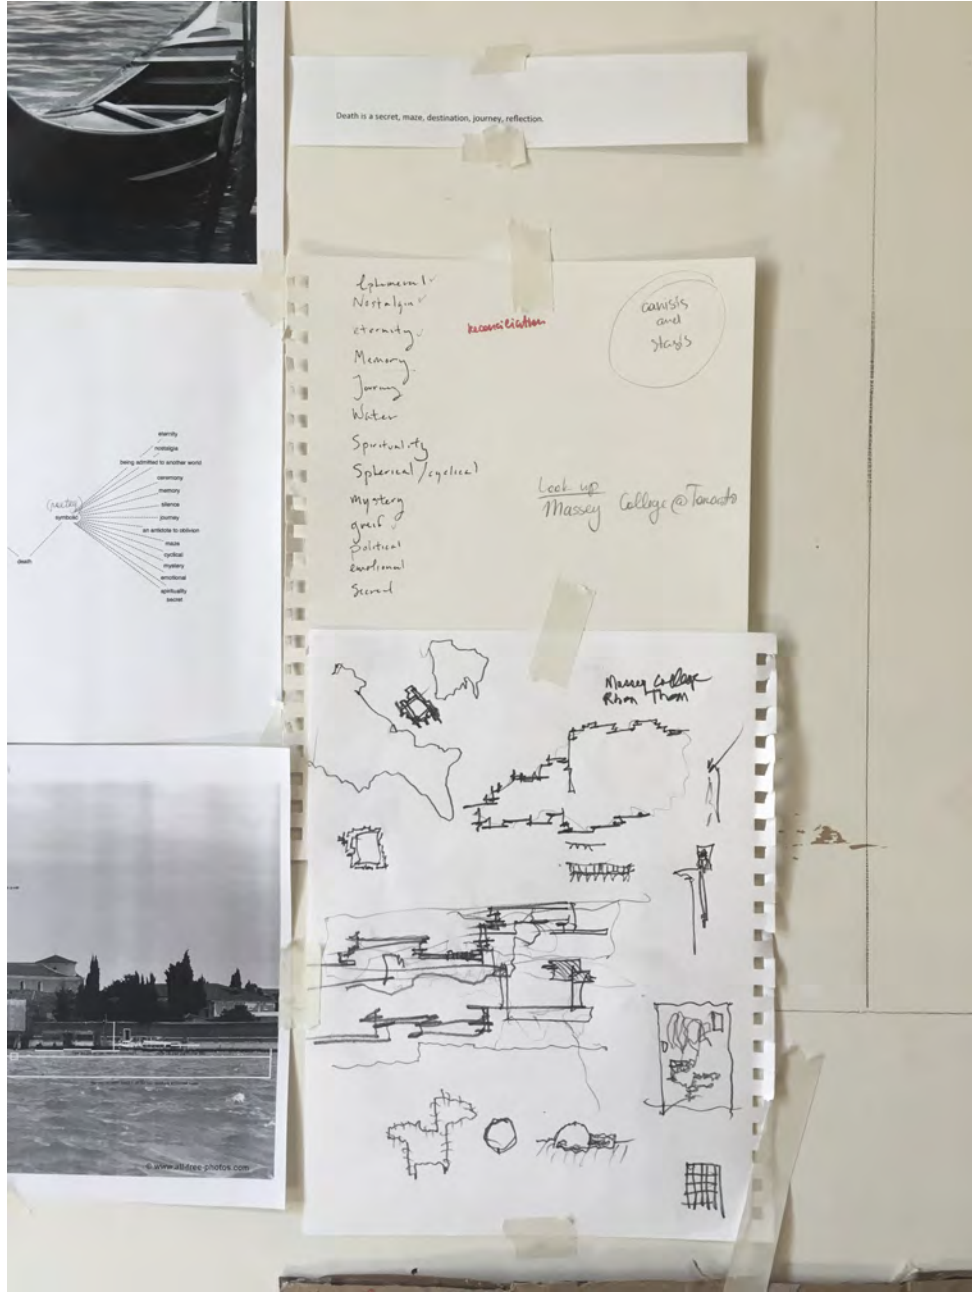 Death is a secret, maze, destination, journey, reflection.
Ephemeral
Nostalgia
eternity
Memory
Journey
Water
Spirituality
Spherical / cyclical
Mystery
greif
political
emotional
Sacred
reconciliation
canisis
and
stasis
Look up
Massey College @ Toronto
eternity
nostalgia
being admitted to another world
ceremony
memory
silence
journey
an antidote to oblivion
maze
cyclical
mystery
emotional
spirituality
secret
(poetry)
symbolic
death
Massey College
Rhon Thom
© www.all-free-photos.com